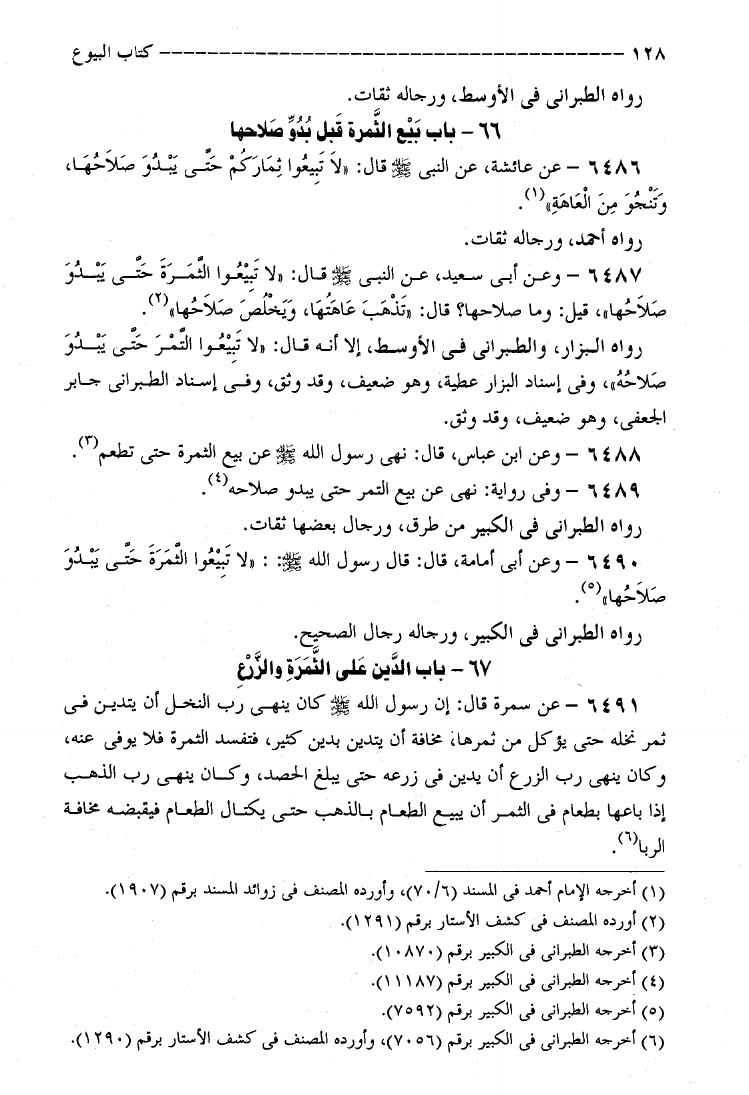 ١٢٨ --------------------------------------- كتاب البيوع
رواه الطبرانى فى الأوسط، ورجاله ثقات.
٦٦ - باب بَيْع الثَّمرة قَبل بُدُوِّ صَلاحها
٦٤٨٦ - عن عائشة، عن النبى ﷺ قال: «لاَ تَبِيعُوا ثِمَارَكُمْ حَتَّـى يَبْـدُوَ صَلاَحُهَـا،
وَتَنْجُوَ مِنَ الْعَاهَةِ»(١).
رواه أحمد، ورجاله ثقات.
٦٤٨٧ - وعـن أبـى سـعيد، عـن النبـى ﷺ قـال: «لا تَبِيْعُـوا الثَّمَـرَةَ حَتَّـى يَبْـدُوَ
صَلاَحُها»، قيل: وما صلاحها؟ قال: «تَذْهَبَ عَاهَتُهَا، وَيَخْلُصَ صَلاَحُها»(٢).
رواه الـبزار، والطـبرانى فـى الأوسـط، إلا أنـه قـال: «لا تَبِيْعُـوا التَّمْـرَ حَتَّـى يَبْـدُوَ
صَلاحُهُ»، وفى إسناد البزار عطية، وهو ضعيف، وقد وثق، وفـى إسـناد الطـبرانى جـابر
الجعفى، وهو ضعيف، وقد وثق.
٦٤٨٨ - وعن ابن عباس، قال: نهى رسول الله ﷺ عن بيع الثمرة حتى تطعم(٣).
٦٤٨٩ - وفى رواية: نهى عن بيع التمر حتى يبدو صلاحه(٤).
رواه الطبرانى فى الكبير من طرق، ورجال بعضها ثقات.
٦٤٩٠ - وعن أبى أمامة، قال: قال رسول الله ﷺ: : «لا تَبِيْعُوا الثَّمَرَةَ حَتَّـى يَبْـدُوَ
صَلاَحُها»(٥).
رواه الطبرانى فى الكبير، ورجاله رجال الصحيح.
٦٧ - باب الدَّين عَلى الثَّمَرَةِ والزَّرْعِ
٦٤٩١ - عن سمرة قال: إن رسول الله ﷺ كان ينهـى رب النخـل أن يتديـن فـى
ثمر نخله حتى يؤكل من ثمرها، مخافة أن يتدين بدين كثير، فتفسد الثمرة فلا يوفى عنه،
وكان ينهى رب الزرع أن يدين فى زرعه حتى يبلغ الحصد، وكـان ينهـى رب الذهـب
إذا باعها بطعام فى الثمـر أن يبيـع الطعـام بـالذهب حتـى يكتـال الطعـام فيقبضـه مخافـة
الربا(٦).
(١) أخرجه الإمام أحمد فى المسند (٧٠/٦)، وأورده المصنف فى زوائد المسند برقم (١٩٠٧).
(٢) أورده المصنف فى كشف الأستار برقم (١٢٩١).
(٣) أخرجه الطبرانى فى الكبير برقم (١٠٨٧٠).
(٤) أخرجه الطبرانى فى الكبير برقم (١١١٨٧).
(٥) أخرجه الطبرانى فى الكبير برقم (٧٥٩٢).
(٦) أخرجه الطبرانى فى الكبير برقم (٧٠٥٦)، وأورده المصنف فى كشف الأستار برقم (١٢٩٠).